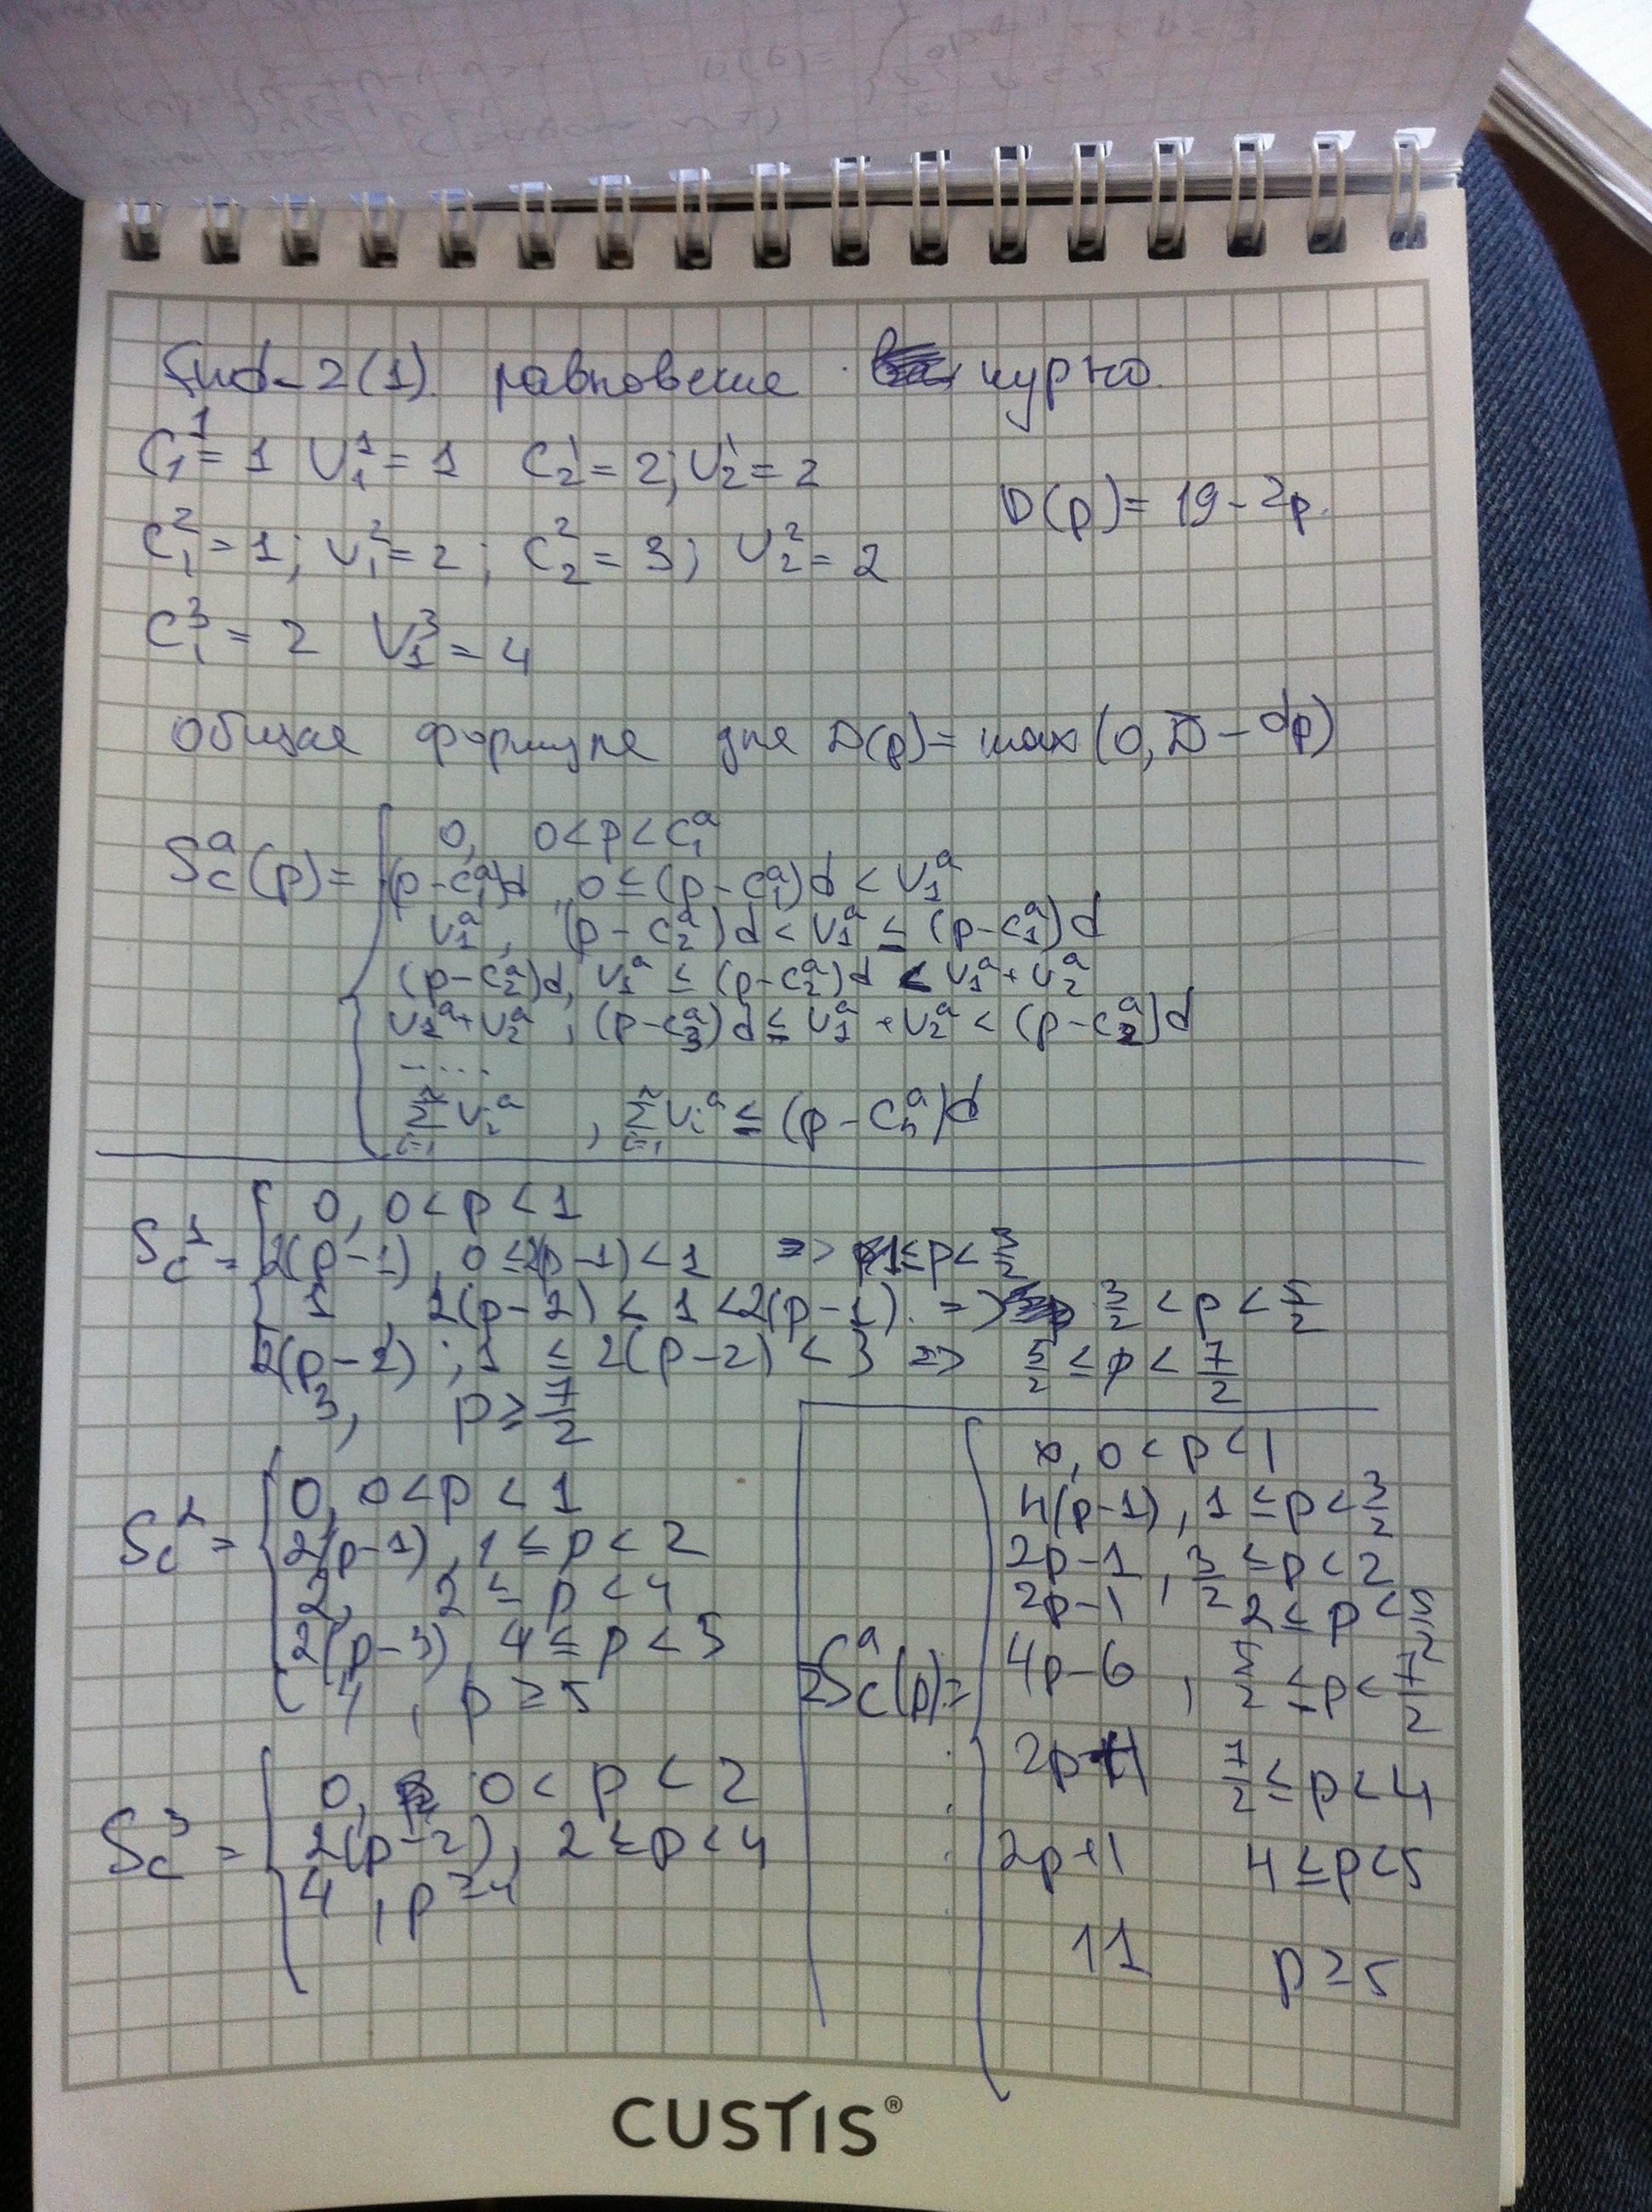 Find-2(1). равновесие курно.
C₁¹ = 1 V₁¹ = 1 C₂¹ = 2; V₂¹ = 2
D(p) = 19 - 2p.
C₁² = 1; V₁² = 2; C₂² = 3; V₂² = 2
C₁³ = 2 V₁³ = 4
Общая формула для D(p) = max(0, D - dp)
0, 0 < p < C₁ᵃ
S_cᵃ(p) = (p - C₁ᵃ)d, 0 ≤ (p - C₁ᵃ)d < V₁ᵃ
V₁ᵃ, (p - C₂ᵃ)d < V₁ᵃ ≤ (p - C₁ᵃ)d
(p - C₂ᵃ)d, V₁ᵃ ≤ (p - C₂ᵃ)d < V₁ᵃ + V₂ᵃ
V₁ᵃ + V₂ᵃ, (p - C₃ᵃ)d ≤ V₁ᵃ + V₂ᵃ < (p - C₂ᵃ)d
.....
∑ᵢ₌₁ⁿ Vᵢᵃ, ∑ᵢ₌₁ⁿ Vᵢᵃ ≤ (p - Cₙᵃ)d
0, 0 < p < 1
S_c¹ = 2(p-1), 0 ≤ 2(p-1) < 1 => 1 ≤ p < 3/2
1, 2(p-2) < 1 < 2(p-1). => 3/2 < p < 5/2
2(p-2); 1 ≤ 2(p-2) < 3 => 5/2 ≤ p < 7/2
3, p ≥ 7/2
0, 0 < p < 1
S_c² = 2(p-1), 1 ≤ p < 2
2, 2 ≤ p < 4
2(p-3), 4 ≤ p < 5
4, p ≥ 5
0, 0 < p < 2
S_c³ = 2(p-2), 2 ≤ p < 4
4, p ≥ 4
0, 0 < p < 1
4(p-1), 1 ≤ p < 3/2
2p-1, 3/2 ≤ p < 2
2p-1, 2 ≤ p < 5/2
ΣS_cᵃ(p) = 4p-6, 5/2 ≤ p < 7/2
7/2 ≤ p < 4
2p+1 4 ≤ p < 5
11 p ≥ 5
CUSTIS®